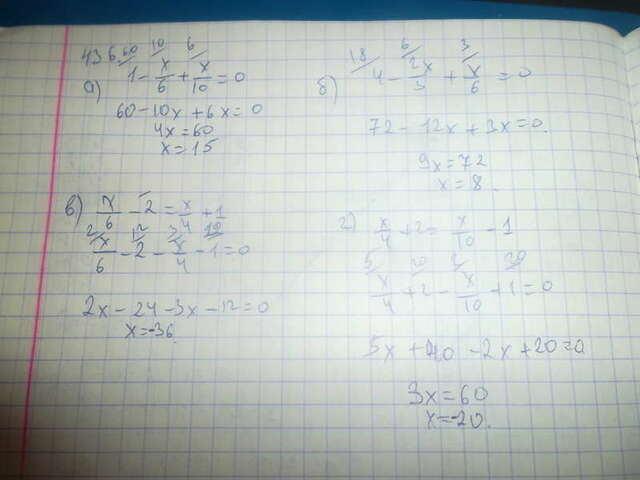 436
60 10 6
а) 1 - x/6 + x/10 = 0
60 - 10x + 6x = 0
4x = 60
x = 15
18 6 3
б) 4 - 2x/3 + x/6 = 0
72 - 12x + 3x = 0
9x = 72
x = 8
в) x/6 - 2 = x/4 + 1
2 12 3 12
x/6 - 2 - x/4 - 1 = 0
2x - 24 - 3x - 12 = 0
x = -36
г) x/4 + 2 = x/10 - 1
5 20 2 20
x/4 + 2 - x/10 + 1 = 0
5x + 40 - 2x + 20 = 0
3x = 60
x = -20.